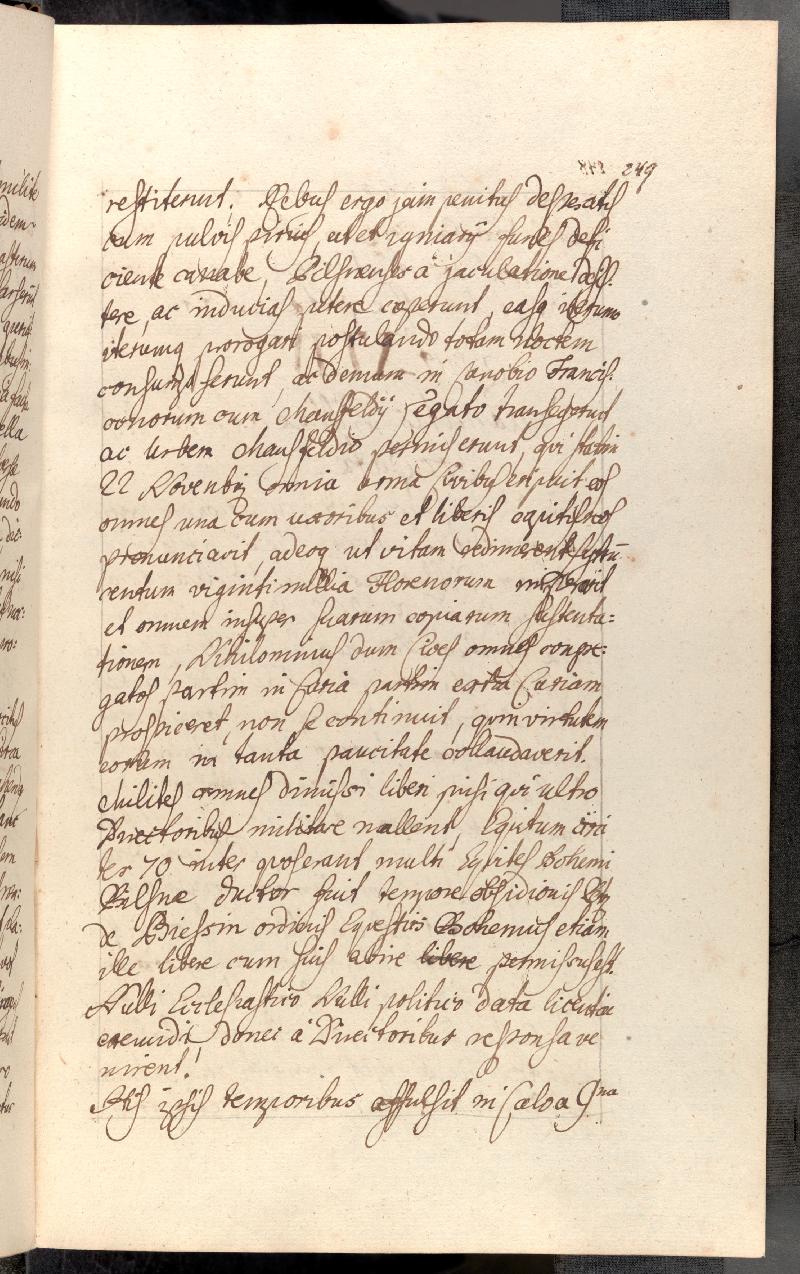 249
restiterunt. Rebus ergo jam penitus desperatis
cum pulvis pyrius, ut et igniarij funes defi
ciente canabe, Pilsnenses a jaculatione desis
tere, ac inducias petere coeperunt, easq iterum
iterumq prorogari postulando totam Noctem
consumpserunt, ac demum in Caenobio Francis
canorum cum Mansfeldij Legato transegerunt
ac Urbem Mansfeldio permiserunt, qui statim
22 Novembris omnia arma Civibus eripuit eos
omnes una cum uxoribus et liberis captivos
pronunciavit, adeoq ut vitam redimerent septin
centum viginti millia Florenorum imperavit
et omnem insuper suarum copiarum sustenta=
tionem, Nihilominus dum Cives omnes congre=
gatos partim in Curia partim extra Curiam
prospiceret, non se continuit, quin virtutem
eorum in tanta paucitate collaudaverit.
Milites omnes dimissi liberi nisi qui ultro
Directoribus militare mallent, Equitum circi
ter 70 inter quos erant multi Equites Bohemi
Pilsnae ductor fuit tempore obsidionis
de ordinis Equestris Bohemus etiam
ille libere cum suis abire permissus est.
Nulli Ecclesiastico Nulli politico data licentia
exeundi donec a Directoribus responsa ve
nirent!
His ipsis temporibus affulsit in Caelo a 9na